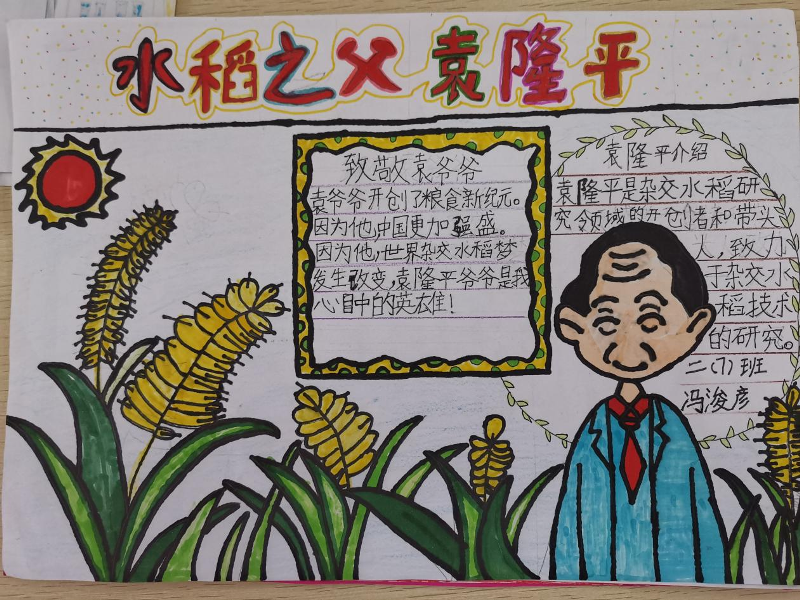 水稻之父 袁隆平
致敬袁爷爷
袁爷爷开创了粮食新纪元。
因为他,中国更加强盛。
因为他,世界杂交水稻梦
发生改变,袁隆平爷爷是我
心目中的英雄!
袁隆平介绍
袁隆平是杂交水稻研
究领域的开创者和带头
人,致力
于杂交水
稻技术
的研究。
二(7)班
冯浚彦